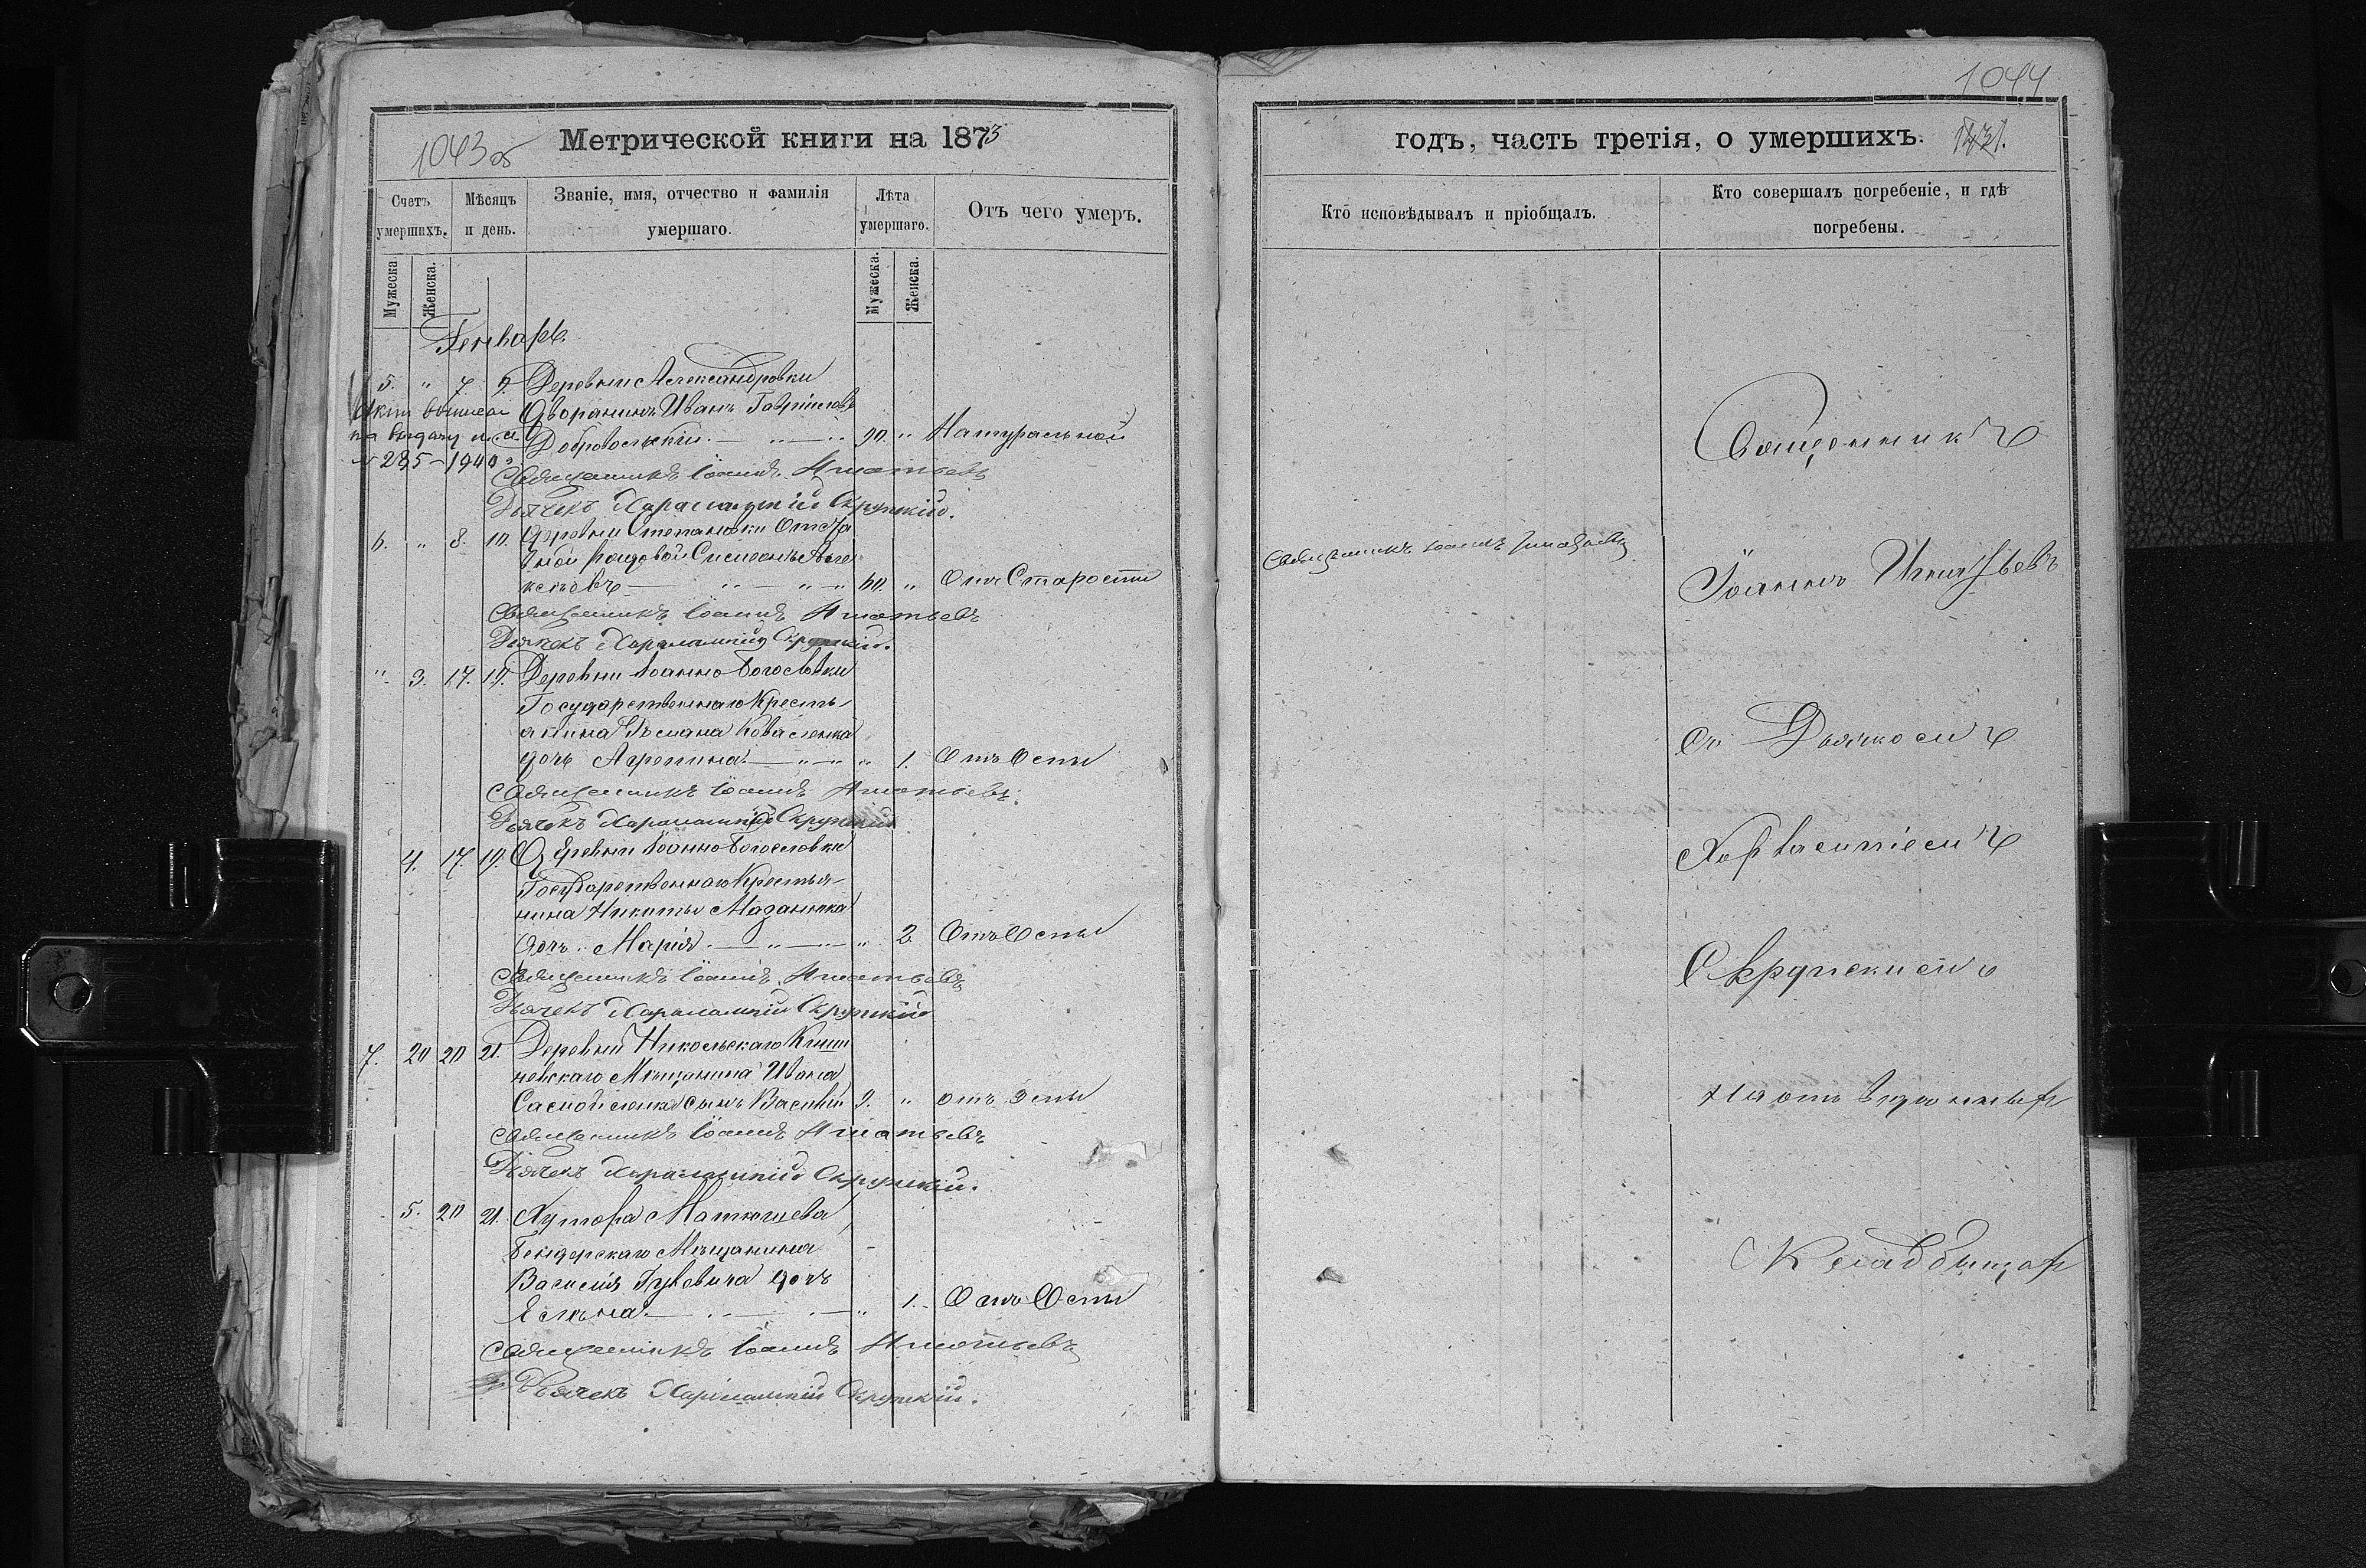 1043 об
Метрической книги на 1873
Счетъ умершихъ.
Мѣсяцъ и день.
Званіе, имя, отчество и фамилія умершаго.
Лѣта умершаго.
Отъ чего умеръ.
Мужеска.
Женска.
Мужеска.
Женска.
Генварь.
5. " 7. 9. Деревни Александровки
Дворянинъ Иванъ Гавриловъ
Добровольскій. — " — " 90. " Натуральной
на выдачу
№ 285 - 1940 г
Священникъ Іоаннъ Игнатьевъ
Дьячекъ Харалампій Скрупскій.
6. " 8. 10. Деревни Степановки Отста
вной рядовой Симеонъ Але
ксѣевъ — " — " — " 60. " Отъ Старости
Священникъ Іоаннъ Игнатьевъ
Дьячекъ Харалампій Скрупскій.
" 3. 17. 19. Деревни Іоанно-Богословки
Государственнаго Кресть-
янина Романа Коваленка
дочь Агрепина. — " — " " 1. Отъ Оспы
Священникъ Іоаннъ Игнатьевъ.
Дьячекъ Харалампій Скрупскій
4. 17. 19. Деревни Іоанно-Богословки
Государственнаго Крестья-
нина Никиты Мазанюка
дочь Марія. — " — " — " 2. Отъ Оспы
Священникъ Іоаннъ Игнатьевъ
Дьячекъ Харалампій Скрупскій
7. 20 20 21. Деревни Никольскаго Киши
невскаго Мѣщанина Ивана
сынъ Василій 9. " отъ Оспы
Священникъ Іоаннъ Игнатьевъ
Дьячекъ Харалампій Скрупскій.
5. 20 21. Хутора
Бендерскаго Мѣщанина
Василія Гуцевича дочь
Елена. — " — " — " 1. Отъ Оспы
Священникъ Іоаннъ Игнатьевъ
Дьячекъ Харалампій Скрупскій.
1044
годъ, часть третія, о умершихъ.
1431.
Кто исповѣдывалъ и пріобщалъ.
Кто совершалъ погребеніе, и гдѣ погребены.
Священникъ Іоаннъ Игнатьевъ
Священникъ
Іоаннъ Игнатьевъ
съ Дьячкомъ
Харлампіемъ
Скрупскимъ
На отведенныхъ
Кладбищах